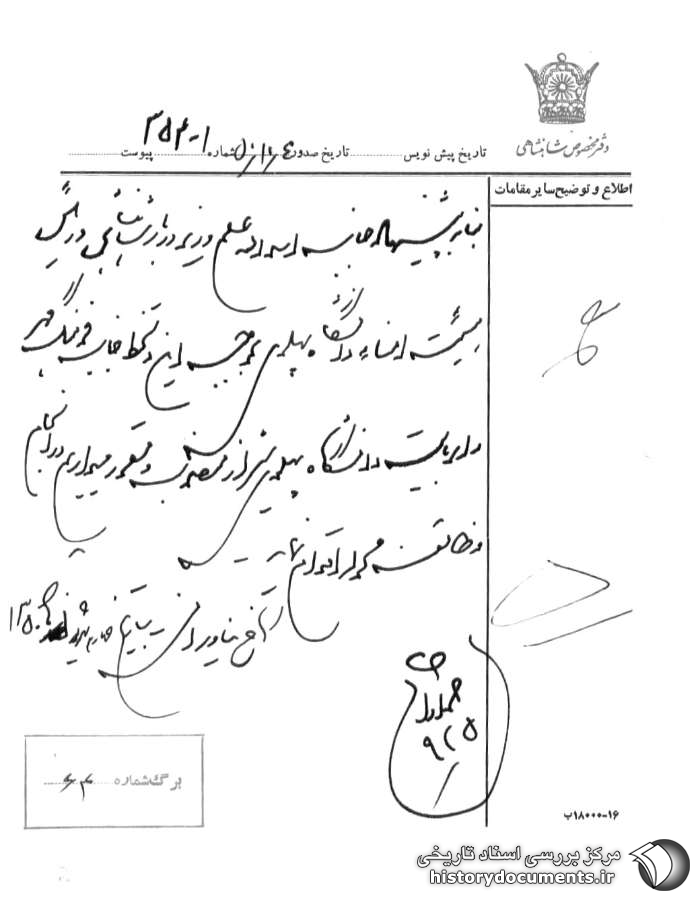 دفتر مخصوص شاهنشاهی
تاریخ پیش نویس تاریخ صدور شماره ۱-۳۵۴ پیوست
اطلاع و توضیح سایر مقامات
بنا به پیشنهاد جناب اسداله علم وزیر دربار شاهنشاهی و رئیس
هیئت امناء دانشگاه پهلوی بموجب این دستخط جناب فرهنگ مهر
را بریاست دانشگاه پهلوی شیراز منصوب و مقرر میداریم در انجام
وظائف محوله اقدام نماید
کاخ نیاوران بتاریخ ۱۳۵۰
۹/۵
برگ شماره ۶۴
۱۶-۱۸۰۰۰ب
مرکز بررسی اسناد تاریخی
historydocuments.ir